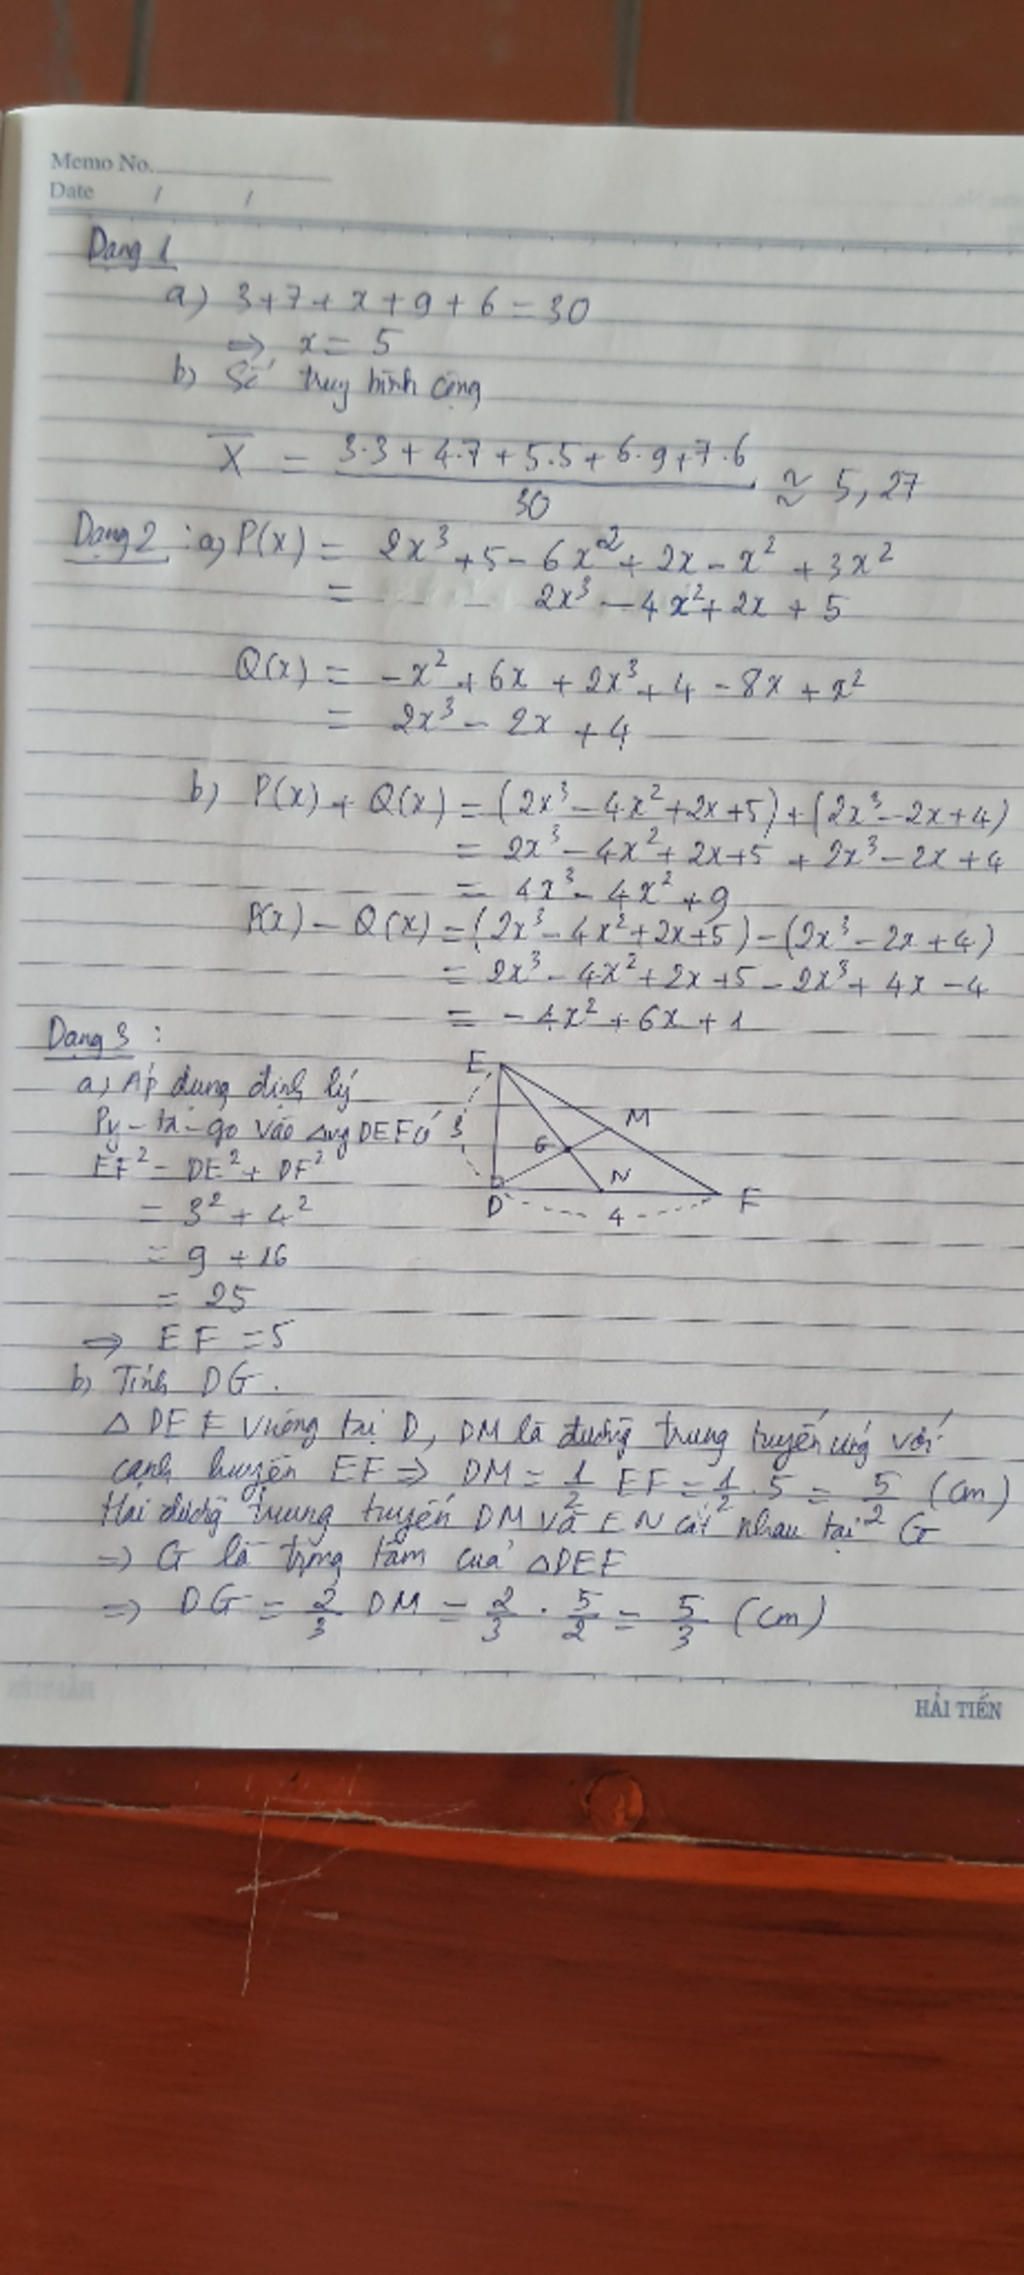 Memo No.
Date / /
Dạng 1
a) 3+7+x+9+6=30
⇒ x = 5
b) Số trung bình cộng
X̄ = (3.3+4.7+5.5+6.9+7.6)/30 ≈ 5,27
Dạng 2 : a) P(x) = 2x³+5-6x²+2x-x²+3x²
= 2x³-4x²+2x+5
Q(x) = -x²+6x+2x³+4-8x+x²
= 2x³-2x+4
b) P(x)+Q(x) = (2x³-4x²+2x+5)+(2x³-2x+4)
= 2x³-4x²+2x+5+2x³-2x+4
= 4x³-4x²+9
P(x)-Q(x) = (2x³-4x²+2x+5)-(2x³-2x+4)
= 2x³-4x²+2x+5-2x³+4x-4
= -4x²+6x+1
Dạng 3 :
a) Áp dụng định lý
Py-ta-go vào Δvg DEF có
EF² = DE²+DF²
= 3²+4²
= 9+16
= 25
⇒ EF = 5
E
M
3
G
N
D
F
4
b) Tính DG.
Δ DEF vuông tại D, DM là đường trung tuyến ứng với
cạnh huyền EF ⇒ DM = 1/2 EF = 1/2 . 5 = 5/2 (cm)
Hai đường trung tuyến DM và EN cắt nhau tại G
⇒ G là trọng tâm của ΔDEF
⇒ DG = 2/3 DM = 2/3 . 5/2 = 5/3 (cm)
HẢI TIẾN